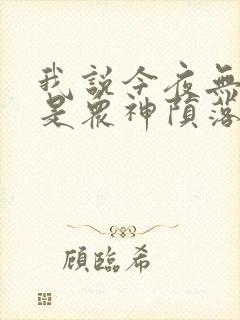 我說今夜無
是眾神隕落
顧臨希